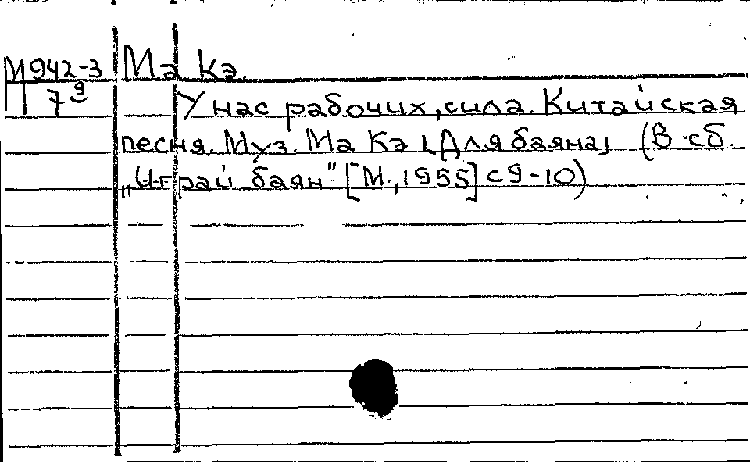 М942-3 Ма Кэ.
7⁹ У нас рабочих, сила. Китайская
песня. Муз. Ма Кэ [Для баяна] (В сб.
„Играй баян" [М., 1955] с 9-10)